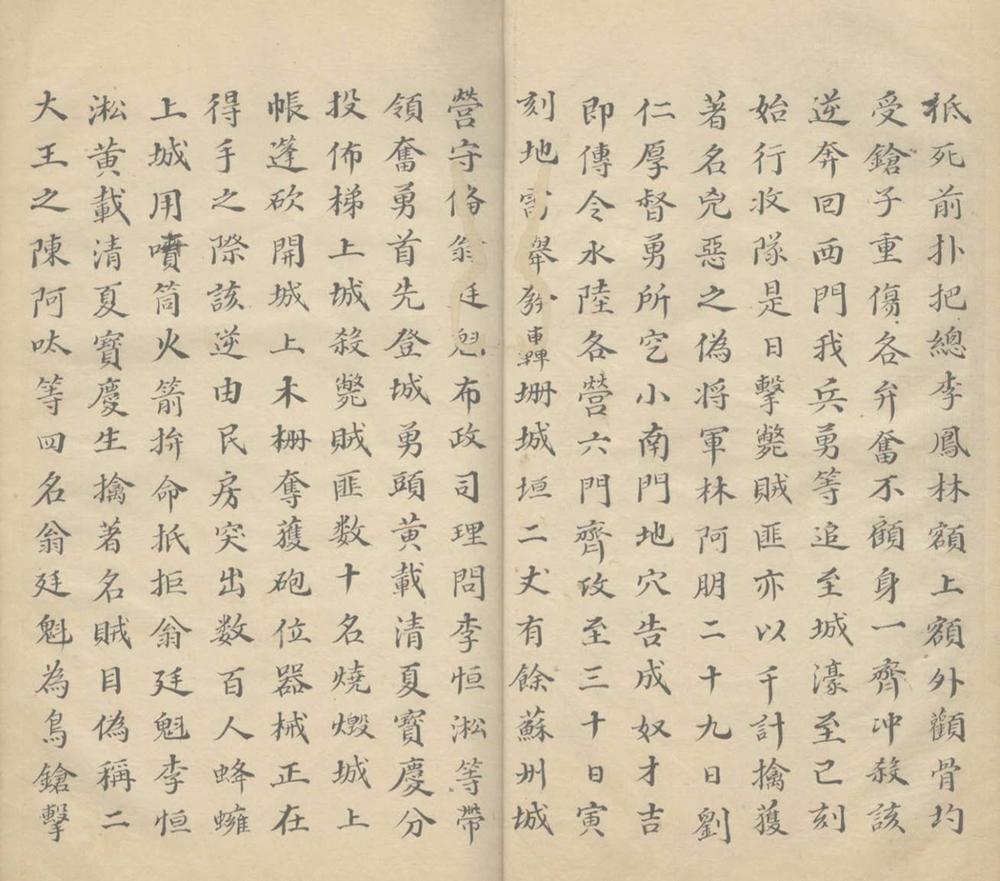 抵死前扑把總李鳳林額上額外顴骨均
受鎗子重傷各弁奮不顧身一齊冲殺該
逆奔回西門我兵勇等追至城濠至已刻
始行收隊是日擊斃賊匪亦以千計擒獲
著名兇惡之偽將軍林阿朋二十九日劉
仁厚督勇所穵小南門地穴告成奴才吉
即傳令水陸各營六門齊攻至三十日寅
刻地雷舉發轟坍城垣二丈有餘蘇州城
營守俻翁廷魁布政司理問李恒淞等帶
領奮勇首先登城勇頭黃載清夏寶慶分
投佈梯上城殺斃賊匪数十名燒燬城上
帳蓬砍開城上木柵奪獲砲位器械正在
得手之際該逆由民房突出数百人蜂擁
上城用噴筒火箭拚命抵拒翁廷魁李恒
淞黃載清夏寶慶生擒著名賊目偽稱二
大王之陳阿呔等四名翁廷魁為鳥鎗擊